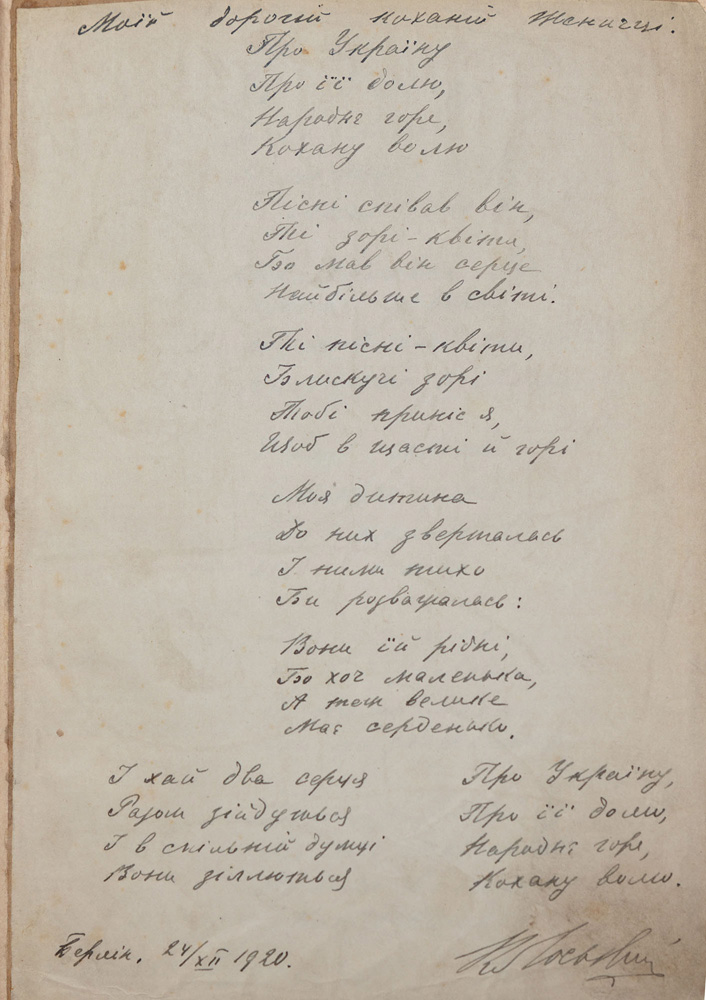 Моїй дорогій коханій Женичці.
Про Україну
Про її долю,
Народнє горе,
Кохану волю
Пісні співав він,
Ті зорі-квіти,
Бо мав він серце
Найбільше в світі.
Ті пісні-квіти,
Блискучі зорі
Тобі приніс я,
Щоб в щасті й горі
Моя дитина
До них зверталась
І ними тихо
Би розважалась:
Вони їй рідні,
Бо хоч маленька,
А теж велике
Має серденько.
І хай два серця
Разом зійдуться
І в спільній думці
Вони зіллються
Про Україну,
Про її долю,
Народнє горе,
Кохану волю.
Берлін. 24/XII 1920.